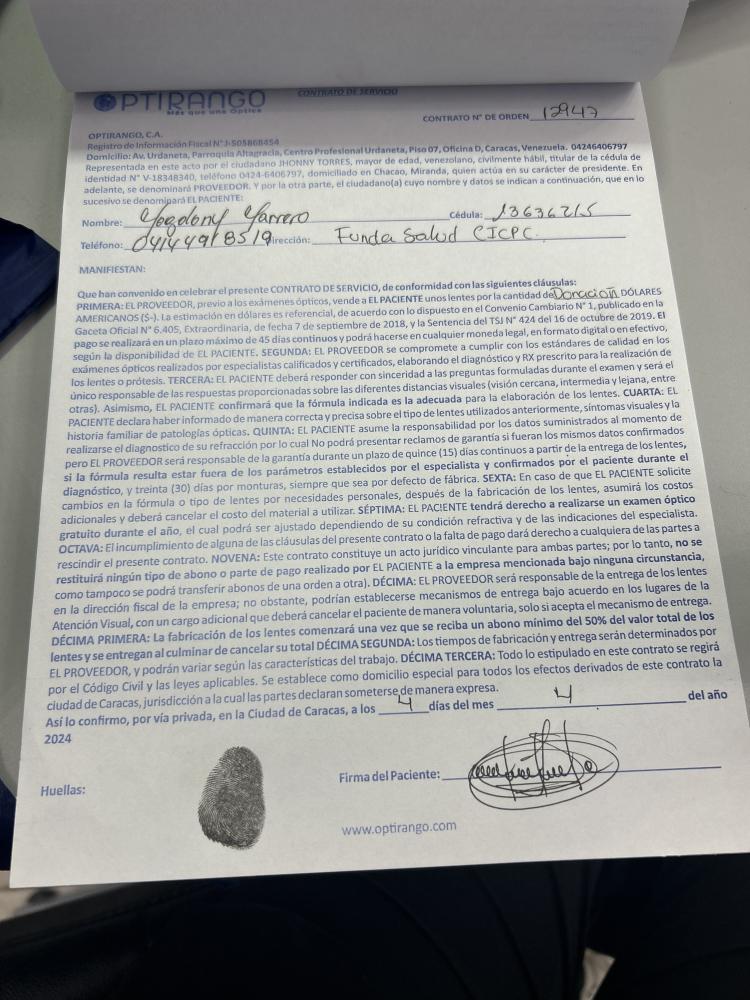 OPTIRANGO
Más que una Óptica
CONTRATO DE SERVICIO
CONTRATO N° DE ORDEN 12947
OPTIRANGO, C.A.
Registro de Información Fiscal N° J-505868454
Domicilio: Av. Urdaneta, Parroquia Altagracia, Centro Profesional Urdaneta, Piso 07, Oficina D, Caracas, Venezuela. 04246406797
Representada en este acto por el ciudadano JHONNY TORRES, mayor de edad, venezolano, civilmente hábil, titular de la cédula de
identidad N° V-18348340, teléfono 0424-6406797, domiciliado en Chacao, Miranda, quien actúa en su carácter de presidente. En
adelante, se denominará PROVEEDOR. Y por la otra parte, el ciudadano(a) cuyo nombre y datos se indican a continuación, que en lo
sucesivo se denominará EL PACIENTE:
Nombre: Marrero Cédula: 13636215
Teléfono: 04144918519 Dirección: Funda Salud CICPC.
MANIFIESTAN:
Que han convenido en celebrar el presente CONTRATO DE SERVICIO, de conformidad con las siguientes cláusulas:
PRIMERA: EL PROVEEDOR, previo a los exámenes ópticos, vende a EL PACIENTE unos lentes por la cantidad de Donación DÓLARES
AMERICANOS ($-). La estimación en dólares es referencial, de acuerdo con lo dispuesto en el Convenio Cambiario N° 1, publicado en la
Gaceta Oficial N° 6.405, Extraordinaria, de fecha 7 de septiembre de 2018, y la Sentencia del TSJ N° 424 del 16 de octubre de 2019. El
pago se realizará en un plazo máximo de 45 días continuos y podrá hacerse en cualquier moneda legal, en formato digital o en efectivo,
según la disponibilidad de EL PACIENTE. SEGUNDA: EL PROVEEDOR se compromete a cumplir con los estándares de calidad en los
exámenes ópticos realizados por especialistas calificados y certificados, elaborando el diagnóstico y RX prescrito para la realización de
los lentes o prótesis. TERCERA: EL PACIENTE deberá responder con sinceridad a las preguntas formuladas durante el examen y será el
único responsable de las respuestas proporcionadas sobre las diferentes distancias visuales (visión cercana, intermedia y lejana, entre
otras). Asimismo, EL PACIENTE confirmará que la fórmula indicada es la adecuada para la elaboración de los lentes. CUARTA: EL
PACIENTE declara haber informado de manera correcta y precisa sobre el tipo de lentes utilizados anteriormente, síntomas visuales y la
historia familiar de patologías ópticas. QUINTA: EL PACIENTE asume la responsabilidad por los datos suministrados al momento de
realizarse el diagnostico de su refracción por lo cual No podrá presentar reclamos de garantía si fueran los mismos datos confirmados
pero EL PROVEEDOR será responsable de la garantía durante un plazo de quince (15) días continuos a partir de la entrega de los lentes,
si la fórmula resulta estar fuera de los parámetros establecidos por el especialista y confirmados por el paciente durante el
diagnóstico, y treinta (30) días por monturas, siempre que sea por defecto de fábrica. SEXTA: En caso de que EL PACIENTE solicite
cambios en la fórmula o tipo de lentes por necesidades personales, después de la fabricación de los lentes, asumirá los costos
adicionales y deberá cancelar el costo del material a utilizar. SÉPTIMA: EL PACIENTE tendrá derecho a realizarse un examen óptico
gratuito durante el año, el cual podrá ser ajustado dependiendo de su condición refractiva y de las indicaciones del especialista.
OCTAVA: El incumplimiento de alguna de las cláusulas del presente contrato o la falta de pago dará derecho a cualquiera de las partes a
rescindir el presente contrato. NOVENA: Este contrato constituye un acto jurídico vinculante para ambas partes; por lo tanto, no se
restituirá ningún tipo de abono o parte de pago realizado por EL PACIENTE a la empresa mencionada bajo ninguna circunstancia,
como tampoco se podrá transferir abonos de una orden a otra). DÉCIMA: EL PROVEEDOR será responsable de la entrega de los lentes
en la dirección fiscal de la empresa; no obstante, podrían establecerse mecanismos de entrega bajo acuerdo en los lugares de la
Atención Visual, con un cargo adicional que deberá cancelar el paciente de manera voluntaria, solo si acepta el mecanismo de entrega.
DÉCIMA PRIMERA: La fabricación de los lentes comenzará una vez que se reciba un abono mínimo del 50% del valor total de los
lentes y se entregan al culminar de cancelar su total DÉCIMA SEGUNDA: Los tiempos de fabricación y entrega serán determinados por
EL PROVEEDOR, y podrán variar según las características del trabajo. DÉCIMA TERCERA: Todo lo estipulado en este contrato se regirá
por el Código Civil y las leyes aplicables. Se establece como domicilio especial para todos los efectos derivados de este contrato la
ciudad de Caracas, jurisdicción a la cual las partes declaran someterse de manera expresa.
Así lo confirmo, por vía privada, en la Ciudad de Caracas, a los 4 días del mes 4 del año
2024
Huellas:
Firma del Paciente:
www.optirango.com